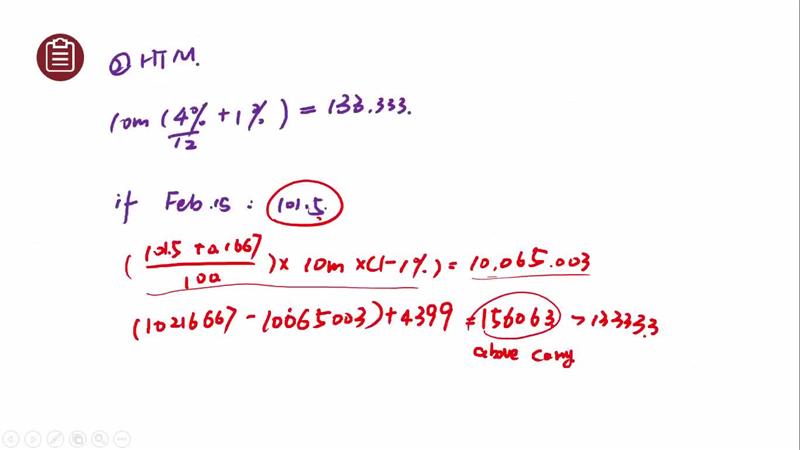 ② HTM.
10m (4%/12 + 1%) = 133.333.
if Feb.15 : 101.5.
(101.5 + 0.1667/100) × 10m × (1-1%) = 10,065.003
(10216667 - 10065003) + 4399 = 156063 > 133333
above carry